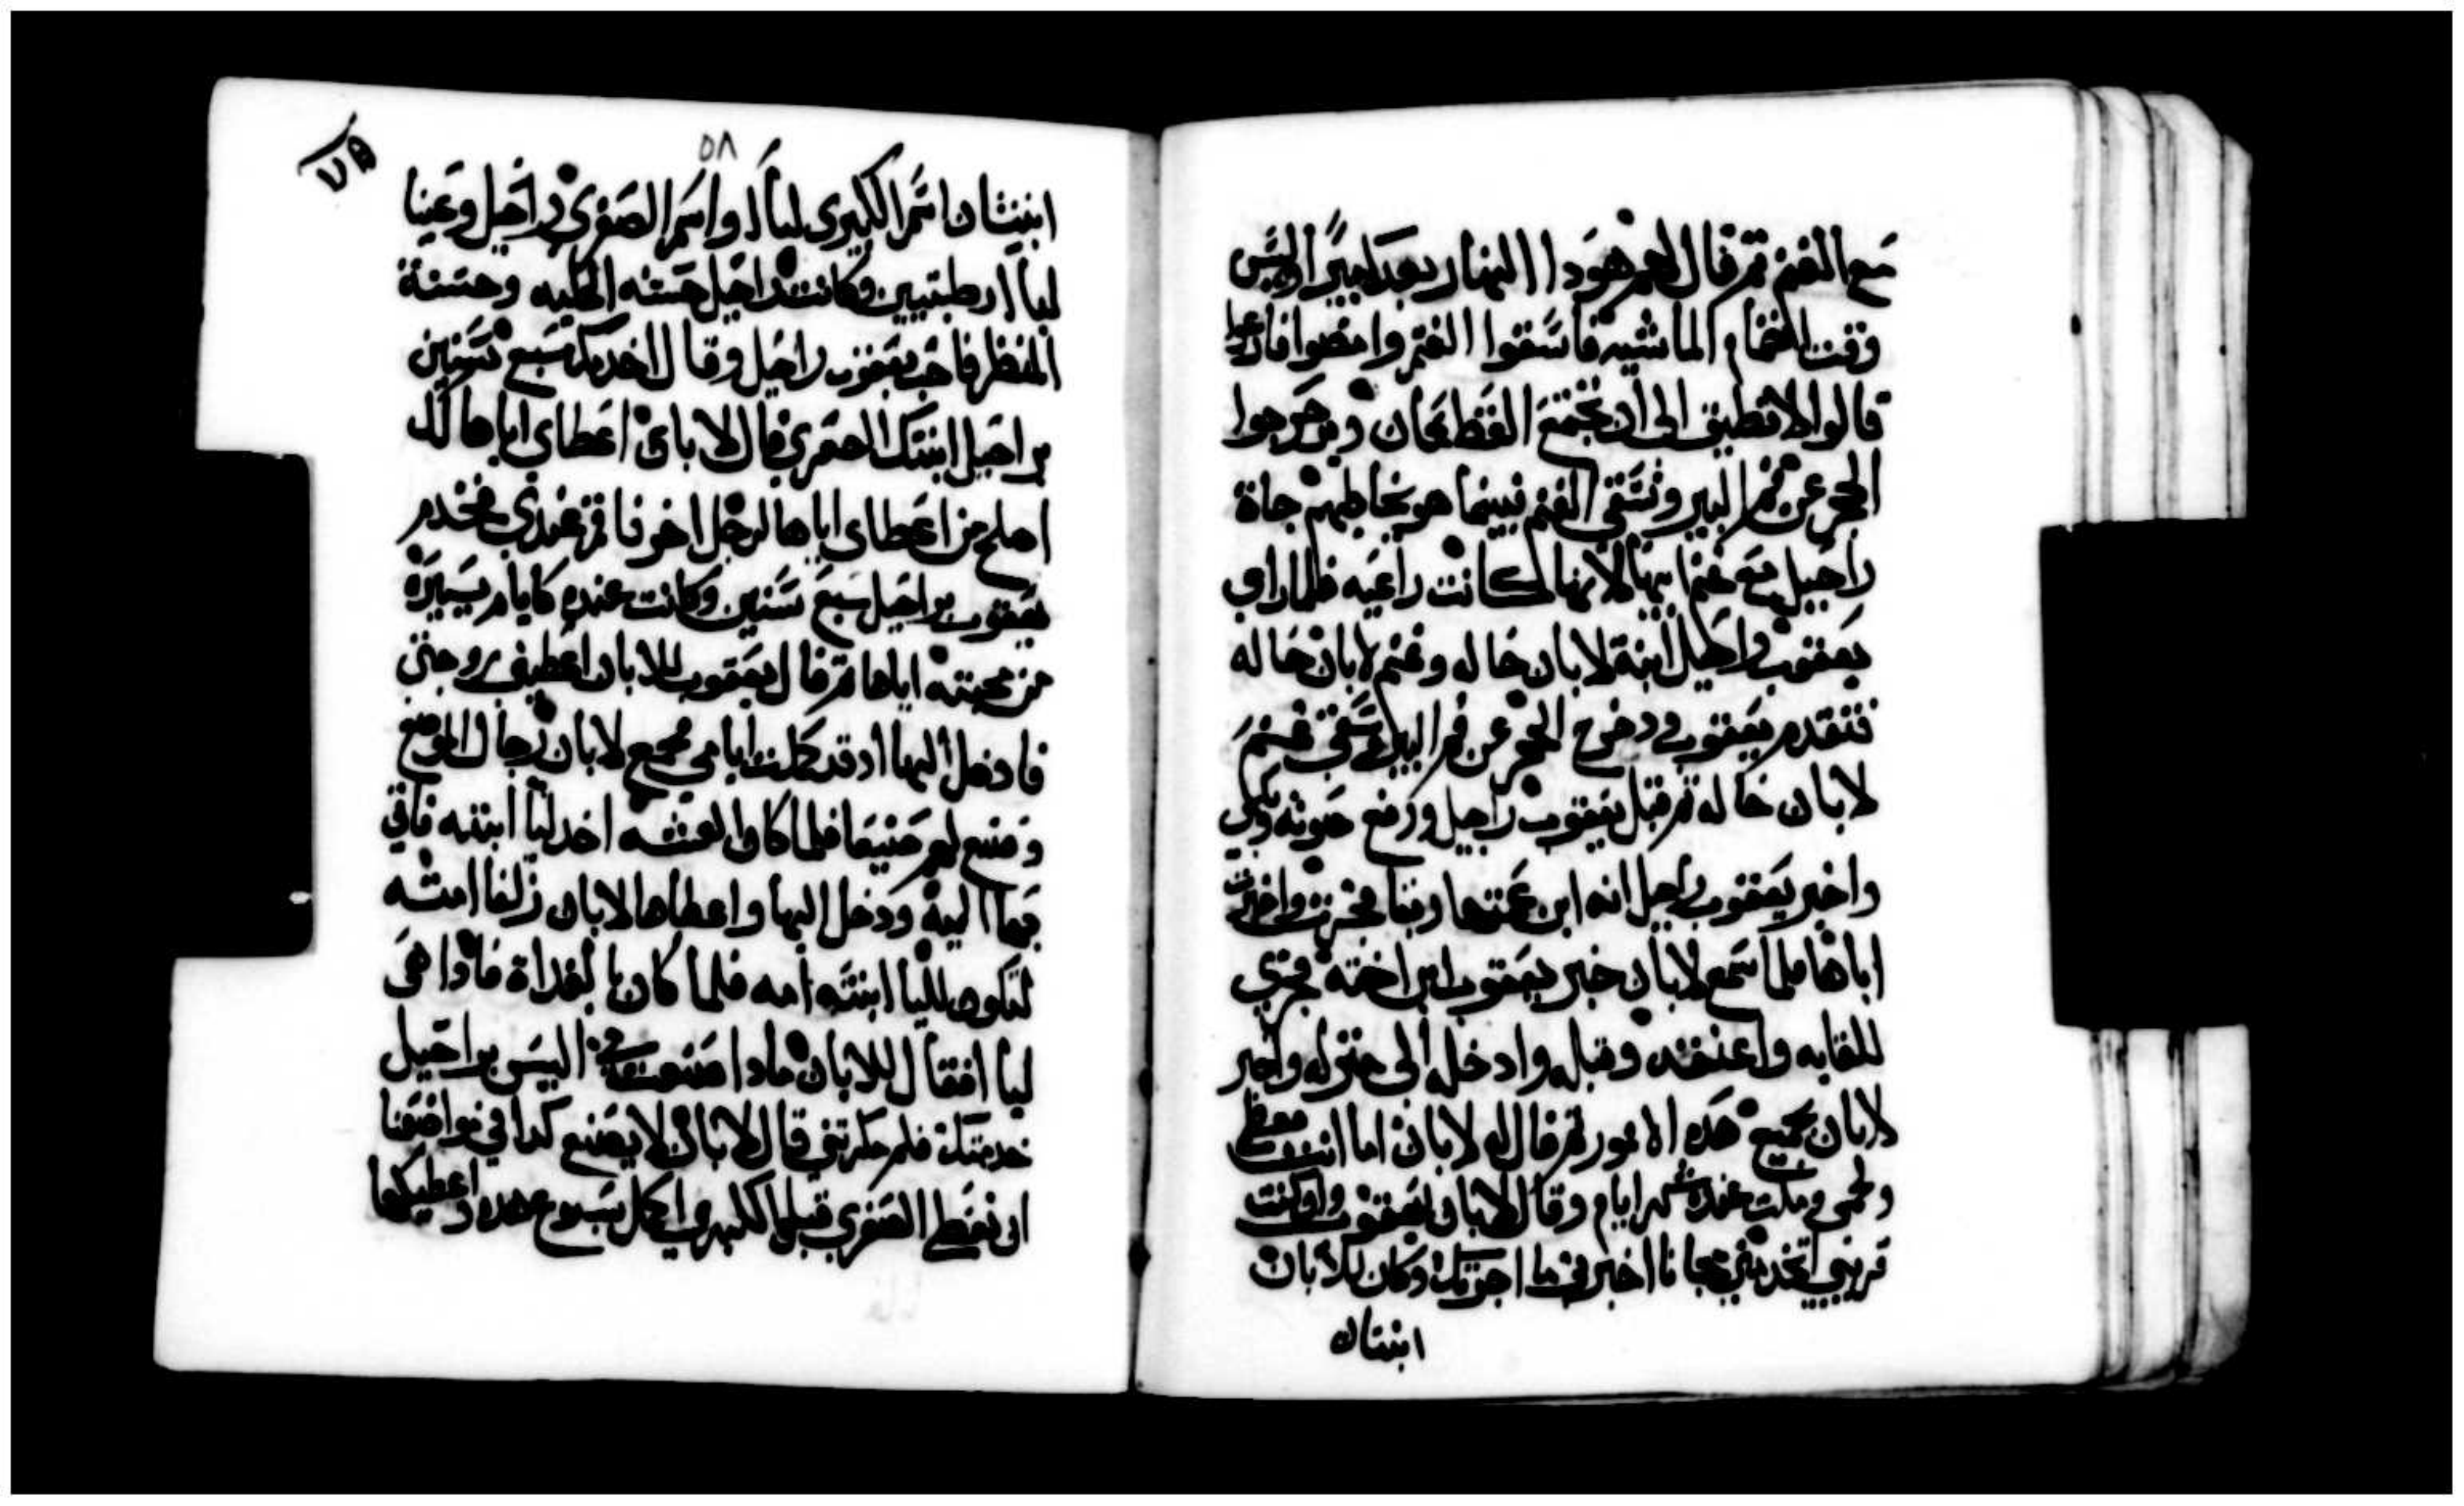 مع الغنم تم قال لهم هودا النهار بعد كبيرًا وليس
وقت انضمام الماشيه فاسقوا الغنم وامضوا فارعوا
قالوا لا نطيق الى ان تجتمع القطعان ويدحرجوا
الحجر عن فم البير ونسقى الغنم فبينما هو يخاطبهم جاة
راحيل مع غنم ابيها لانها كانت راعيه فلما راي
يعقوب راحيل ابنة لابان خاله وغنم لابان خاله
فتقدم يعقوب ودحرج الحجر عن فم البير وسقى غنم
لابان خاله تم قبل يعقوب راحيل ورفع صوته وبكى
واخبر يعقوب راحيل انه ابن عمتها وبنا فجرت واخبرت
اباها فلما سمع لابان خبر يعقوب ابن اخته فجري
للقايه واعنقه وقبله وادخله الى منزله واخبر
لابان جميع هده الامور تم قال له لابان اما انت عظمي
ولحمى ومكت عنده شهر ايام وقال لابان ليعقوب وان كنت
قريبي اتخدمني مجانا اخبرنى ما اجرتك وكان للابان
ابنتان
٥٨
ابنتان اسم الكبيرى ليا واسم الصغرى راحيل وعينا
ليا رطبتيين وكانت راحيل حسنه الحليه وحسنة
المنظر فاحب يعقوب راحيل وقال اخدمك سبع سنين
براحيل ابنتك الصغرى قال لابان اعطاى اياها لك
اصلح من اعطاى اياها لرجل اخر فاقم عندي فخدم
يعقوب براحيل سبع سنين وكانت عنده كايام يسيرة
من محبته اياها تم قال يعقوب للابان اعطيني زوجتى
فادخل اليها اد قد كملت ايامي فجمع لابان رجال الموضع
وصنع لهم صنيعا فلما كان العشه اخد ليا ابنته فاتى
بها اليه ودخل اليها واعطاها لابان زلفا امته
لتكون لليا ابنته امه فلما كان بالغداة فادا هى
ليا فقال للابان مادا صنعت بي اليس براحيل
خدمتك فلم مكرتني قال لابان لا يصنع كدا في مواضعنا
ان نعطى الصغرى قبل الكبيري اكمل سبوع هده واعطيكها